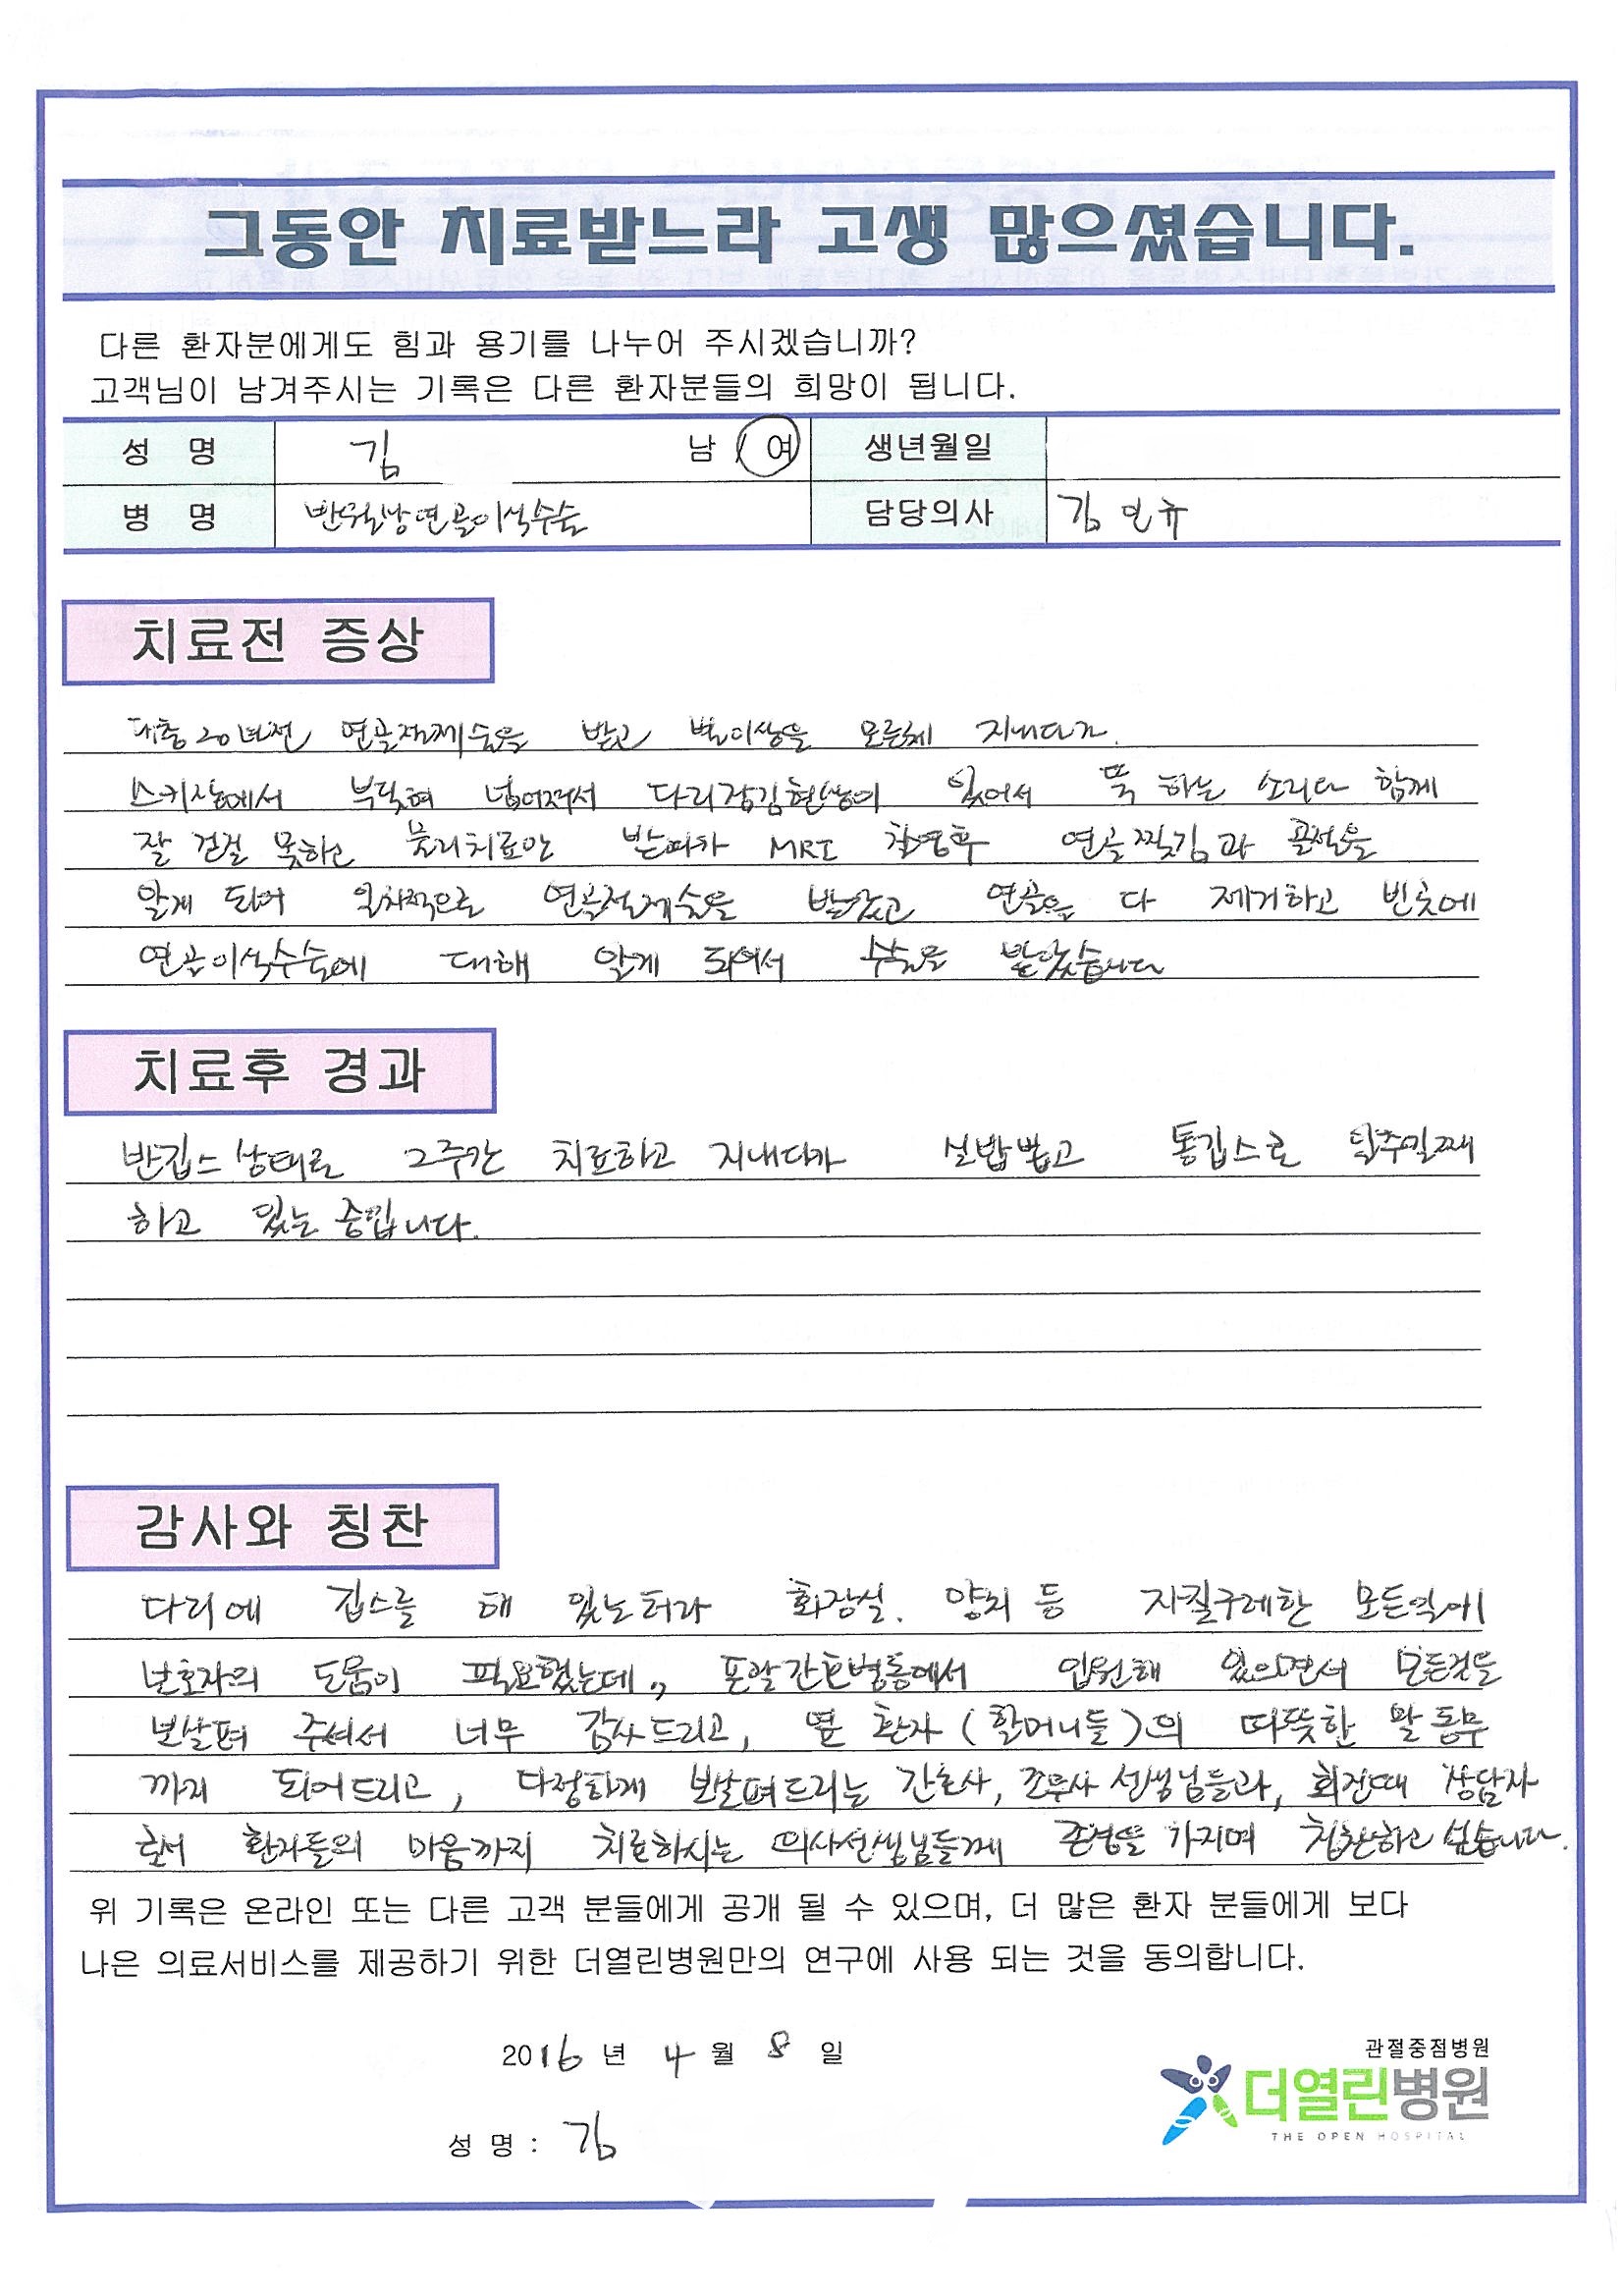 그동안 치료받느라 고생 많으셨습니다.
다른 환자분에게도 힘과 용기를 나누어 주시겠습니까?
고객님이 남겨주시는 기록은 다른 환자분들의 희망이 됩니다.
성 명 김 남 / 여 생년월일
병 명 반월상연골이식수술 담당의사 김민규
치료전 증상
대충 20년전 연골절제술을 받고 별이상을 모른체 지내다가.
스키장에서 부딪혀 넘어져서 다리잠김현상이 있어서 뚝 하는 소리와 함께
잘 걷질 못하고 물리치료만 받다가 MRI 촬영후 연골찢김과 골절을
알게 되어 일차적으로 연골절제술을 받았고 연골을 다 제거하고 빈곳에
연골이식수술에 대해 알게 되어서 수술을 받았습니다
치료후 경과
반깁스 상태로 2주간 치료하고 지내다가 실밥뽑고 통깁스로 일주일째
하고 있는 중입니다.
감사와 칭찬
다리에 깁스를 해 있는터라 화장실. 양치 등 자질구레한 모든일에
보호자의 도움이 필요했는데,, 포괄간호병동에서 입원해 있으면서 모든것을
보살펴 주셔서 너무 감사드리고, 옆 환자(할머니들)의 따뜻한 말동무
까지 되어드리고, 다정하게 보살펴드리는 간호사, 조무사 선생님들과, 회진때 상담자
로서 환자들의 마음까지 치료하시는 의사선생님들께 존경을 가지며 칭찬하고 싶습니다.
위 기록은 온라인 또는 다른 고객 분들에게 공개 될 수 있으며, 더 많은 환자 분들에게 보다
나은 의료서비스를 제공하기 위한 더열린병원만의 연구에 사용 되는 것을 동의합니다.
2016 년 4 월 8 일
관절중점병원
더열린병원
THE OPEN HOSPITAL
성 명 : 김